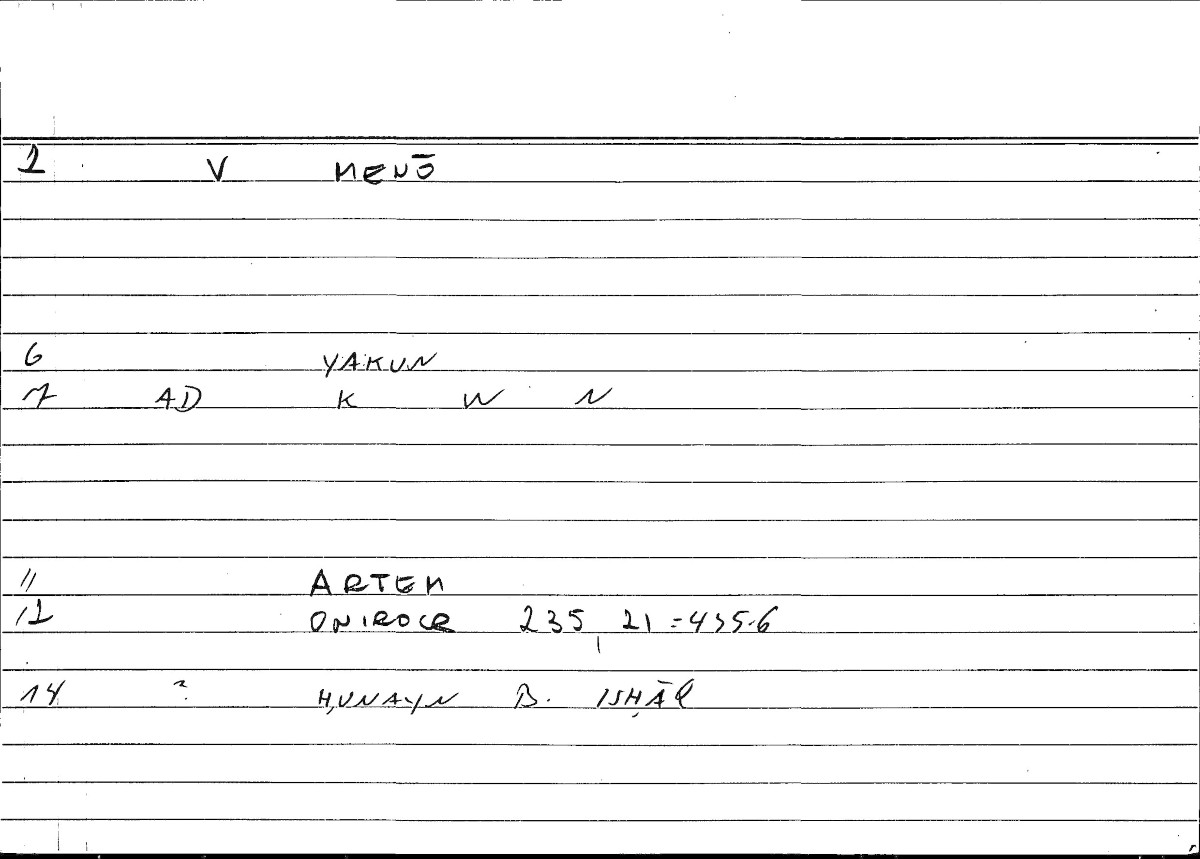 2 V MENŌ
6 YAKUN
7 AD K W N
11 ARTEM
12 ONIROCR 235, 21 = 435.6
14 ? ḤUNAYN B. ISḤĀQ